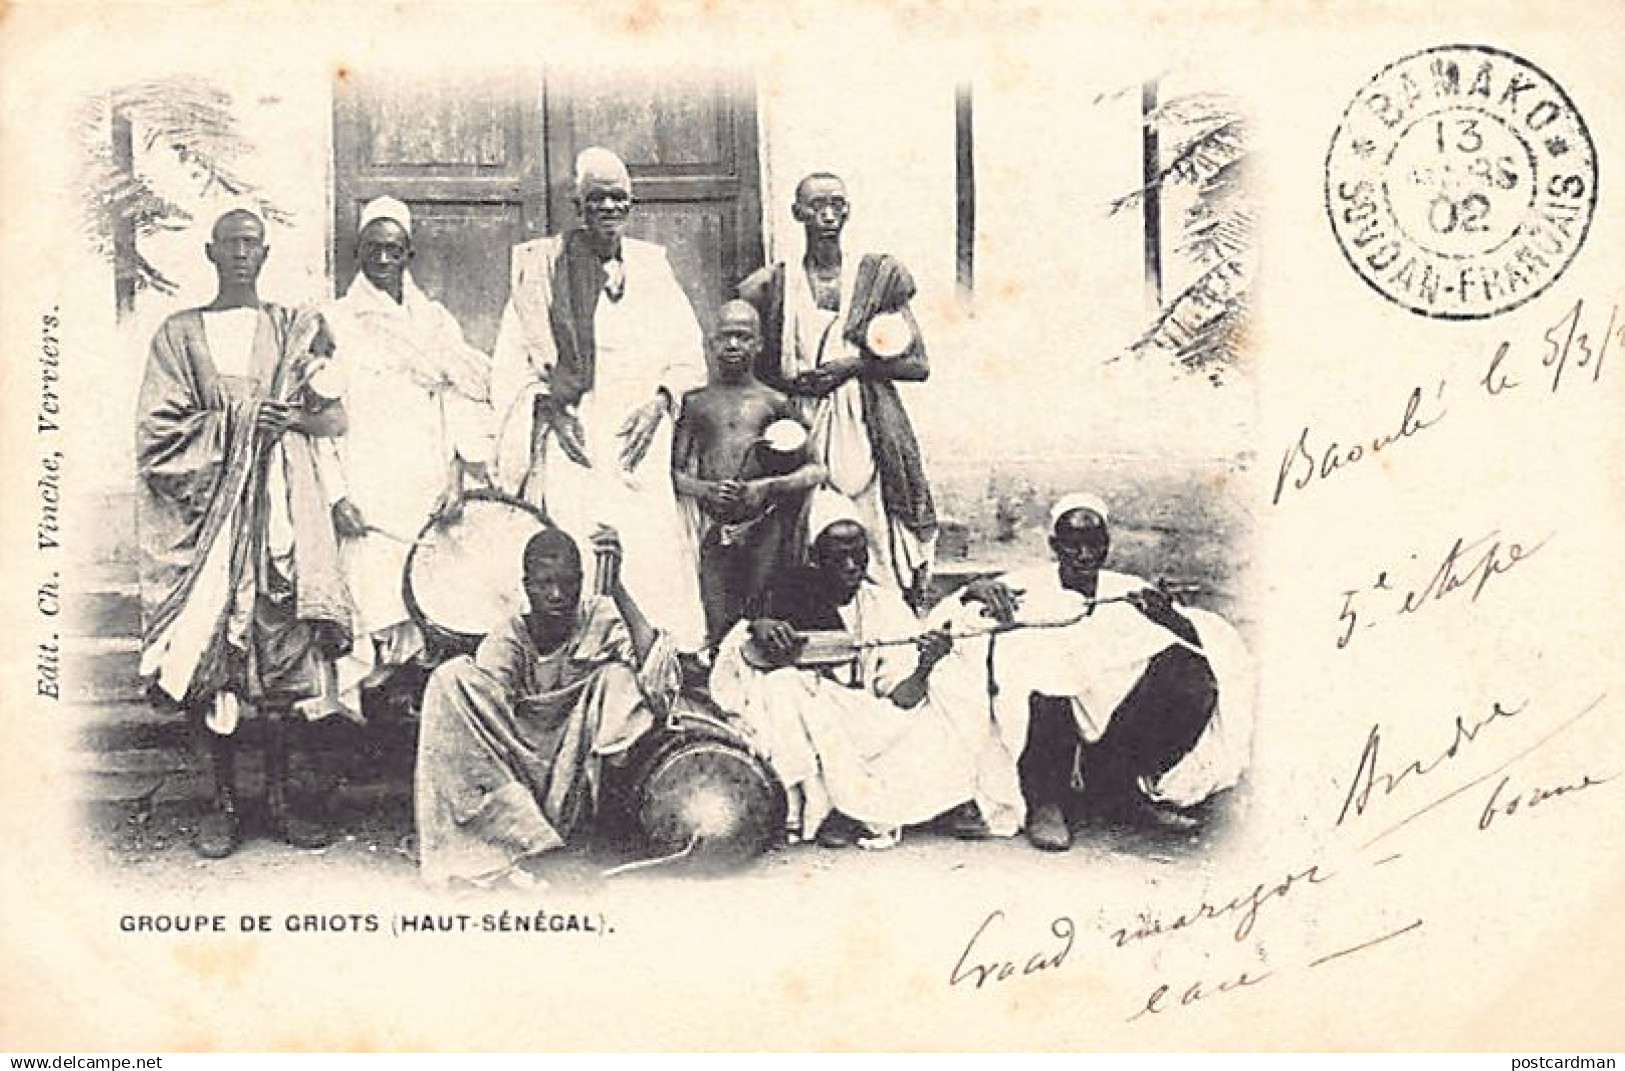 BAMAKO
13
MARS
02
SOUDAN-FRANÇAIS
Edit. Ch. Vinche, Verviers.
Baoulé le 5/3/
5e étape
André
bonne
eau
GROUPE DE GRIOTS (HAUT-SÉNÉGAL).
www.delcampe.net
postcardman